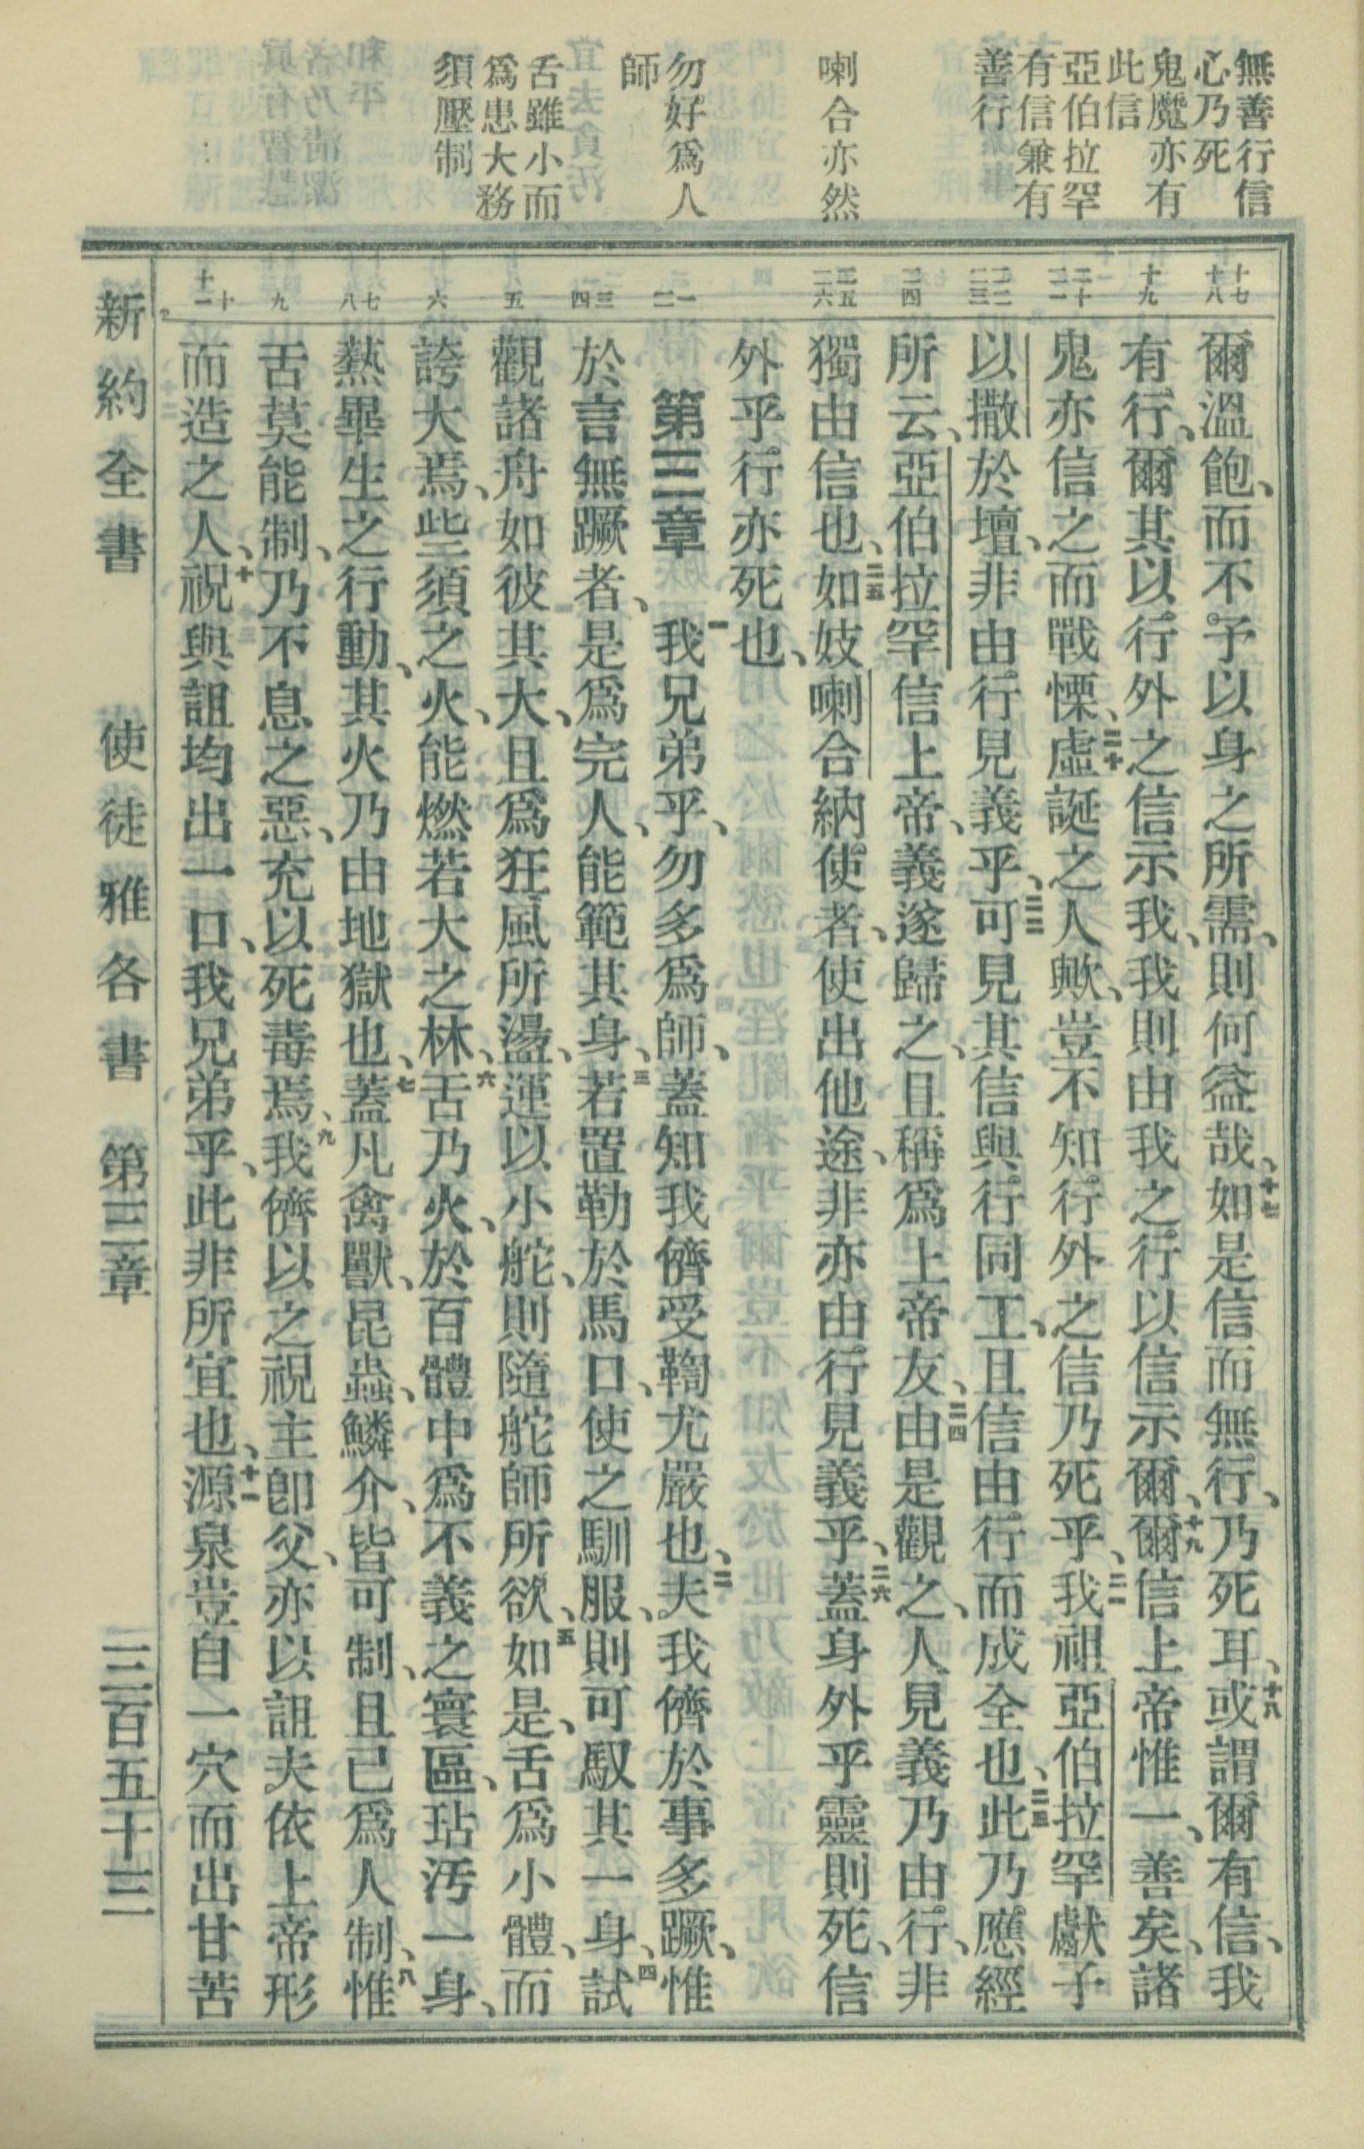 無善行信
心乃死
鬼魔亦有
此信
亞伯拉罕
有信兼有
善行
喇合亦然
勿好爲人
師
舌雖小而
爲患大務
須壓制
十七 十八
十九
二十 二一
二二 二三
二四
二五 二六
一 二
三 四
五
六
七 八
九
十 十一
爾溫飽、而不予以身之所需、則何益哉、十七如是信而無行、乃死耳、十八或謂爾有信、我
有行、爾其以行外之信示我、我則由我之行以信示爾、十九爾信上帝惟一、善矣、諸
鬼亦信之而戰慄、二十虛誕之人歟、豈不知行外之信乃死乎、二一我祖亞伯拉罕獻子
以撒於壇、非由行見義乎、二二可見其信與行同工、且信由行而成全也、二三此乃應經
所云、亞伯拉罕信上帝、義遂歸之、且稱爲上帝友、二四由是觀之、人見義乃由行、非
獨由信也、二五如妓喇合納使者、使出他途、非亦由行見義乎、二六蓋身外乎靈則死、信
外乎行亦死也、
第三章 一我兄弟乎、勿多爲師、蓋知我儕受鞫尤嚴也、二夫我儕於事多蹶、惟
於言無蹶者、是爲完人、能範其身、三若置勒於馬口、使之馴服、則可馭其一身、四試
觀諸舟如彼其大、且爲狂風所盪、運以小舵、則隨舵師所欲、五如是、舌爲小體、而
誇大焉、些須之火、能燃若大之林、六舌乃火、於百體中爲不義之寰區、玷汚一身、
熱畢生之行動、其火乃由地獄也、七蓋凡禽獸、昆蟲、鱗介、皆可制、且已爲人制、八惟
舌莫能制、乃不息之惡、充以死毒焉、九我儕以之祝主卽父、亦以詛夫依上帝形
而造之人、十祝與詛均出一口、我兄弟乎、此非所宜也、十一源泉豈自一穴而出甘苦
新約全書 使徒雅各書 第三章 三百五十三